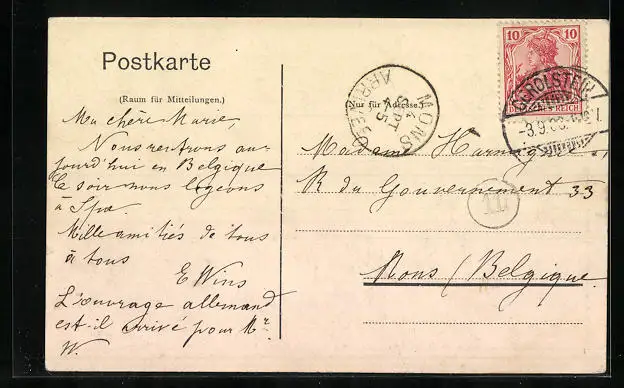 Postkarte
(Raum für Mitteilungen.)
Nur für Adresse.
Ma chère Marie,
Nous rentrons au-
jourd'hui en Belgique
Ce soir nous logeons
à Spa.
Mille amitiés de tous
à tous
E Wins
L'ouvrage allemand
est-il arrivé pour Mr
W.
10 10
REICH
GEROLSTEIN
-3.9.
MONS
SEPT
ARRIVÉE
Madame
R du Gouvernement 33
Mons (Belgique.